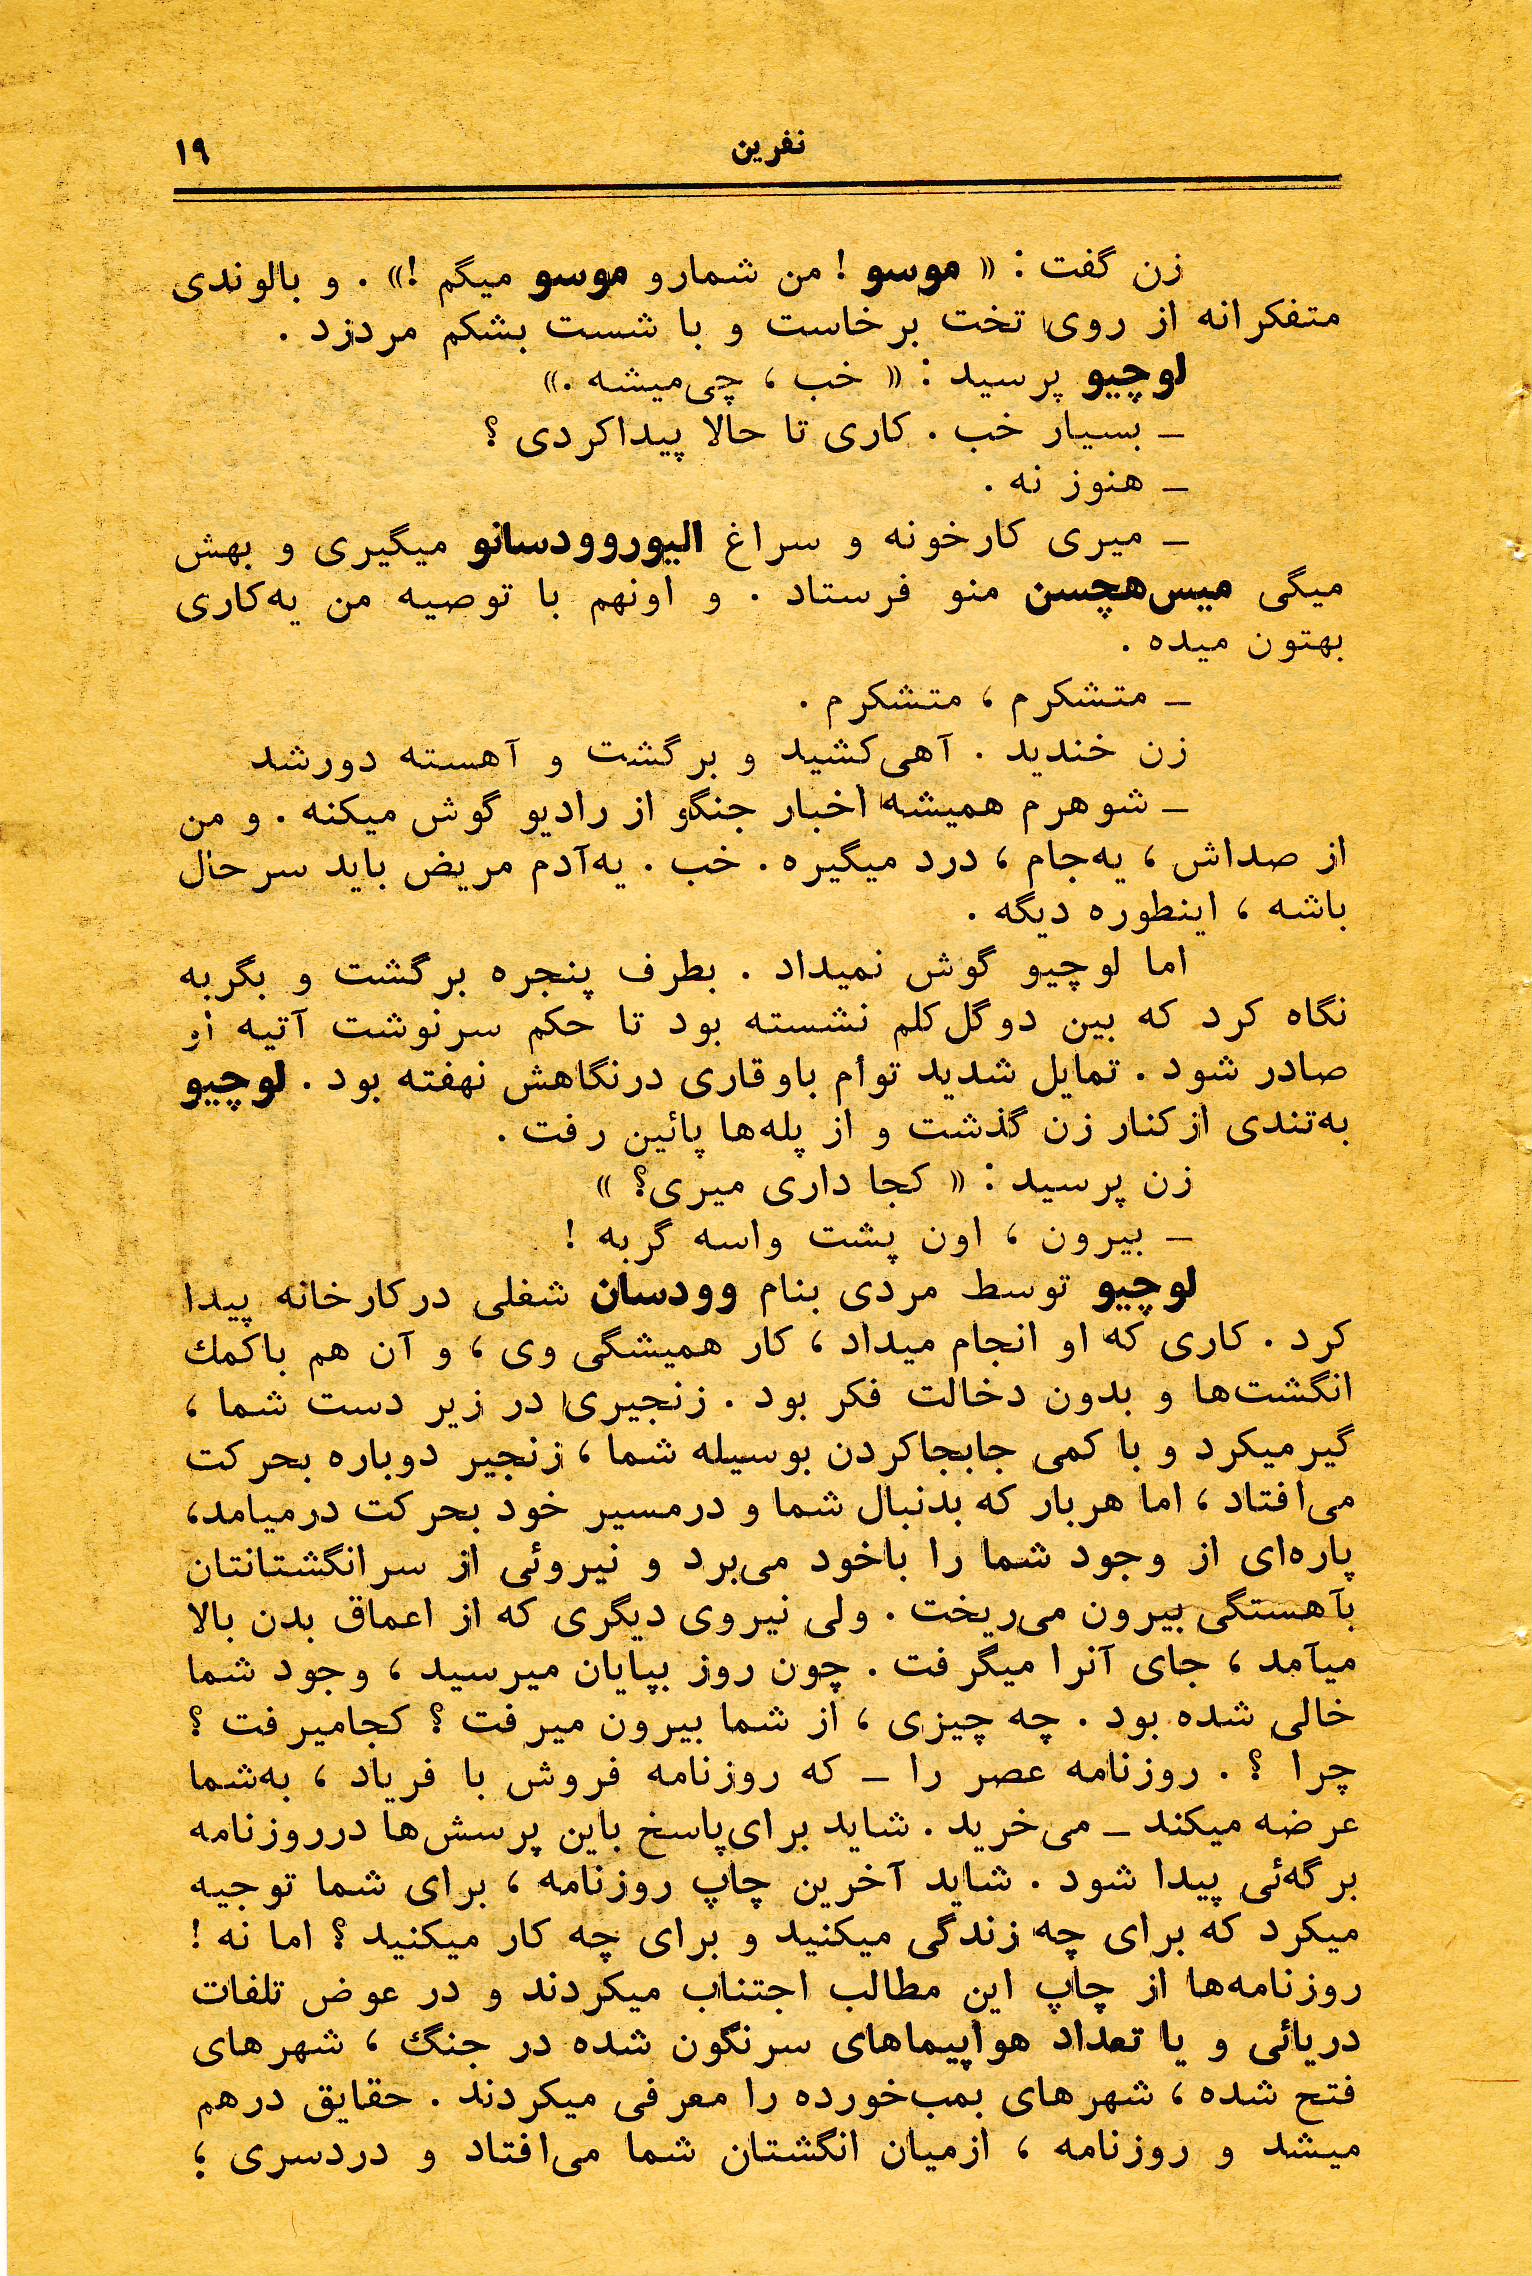 نفرین ۱۹
زن گفت : « موسو ! من شمارو موسو میگم !» . و بالوندی
متفکرانه از روی تخت برخاست و با شست بشکم مردزد .
لوچیو پرسید : « خب ، چی‌میشه .»
ـ بسیار خب . کاری تا حالا پیداکردی ؟
ـ هنوز نه .
ـ میری کارخونه و سراغ الیوروودسانو میگیری و بهش
میگی میس‌هچسن منو فرستاد . و اونهم با توصیه من یه‌کاری
بهتون میده .
ـ متشکرم ، متشکرم .
زن خندید . آهی‌کشید و برگشت و آهسته دورشد
ـ شوهرم همیشه اخبار جنگو از رادیو گوش میکنه . و من
از صداش ، یه‌جام ، درد میگیره . خب . یه‌آدم مریض باید سرحال
باشه ، اینطوره دیگه .
اما لوچیو گوش نمیداد . بطرف پنجره برگشت و بگربه
نگاه کرد که بین دوگل‌کلم نشسته بود تا حکم سرنوشت آتیه او
صادر شود . تمایل شدید توأم باوقاری درنگاهش نهفته بود . لوچیو
به‌تندی ازکنار زن گذشت و از پله‌ها پائین رفت .
زن پرسید : « کجا داری میری؟ »
ـ بیرون ، اون پشت واسه گربه !
لوچیو توسط مردی بنام وودسان شغلی درکارخانه پیدا
کرد . کاری که او انجام میداد ، کار همیشگی وی ، و آن هم باکمك
انگشت‌ها و بدون دخالت فکر بود . زنجیری در زیر دست شما ،
گیرمیکرد و با کمی جابجاکردن بوسیله شما ، زنجیر دوباره بحرکت
می‌افتاد ، اما هربار که بدنبال شما و درمسیر خود بحرکت درمیامد،
پاره‌ای از وجود شما را باخود می‌برد و نیروئی از سرانگشتانتان
بآهستگی بیرون می‌ریخت . ولی نیروی دیگری که از اعماق بدن بالا
میآمد ، جای آنرا میگرفت . چون روز بپایان میرسید ، وجود شما
خالی شده بود . چه چیزی ، از شما بیرون میرفت ؟ کجامیرفت ؟
چرا ؟ . روزنامه عصر را ـ که روزنامه فروش با فریاد ، به‌شما
عرضه میکند ـ می‌خرید . شاید برای‌پاسخ باین پرسش‌ها درروزنامه
برگه‌ئی پیدا شود . شاید آخرین چاپ روزنامه ، برای شما توجیه
میکرد که برای چه زندگی میکنید و برای چه کار میکنید ؟ اما نه !
روزنامه‌ها از چاپ این مطالب اجتناب میکردند و در عوض تلفات
دریائی و یا تعداد هواپیماهای سرنگون شده در جنگ ، شهرهای
فتح شده ، شهرهای بمب‌خورده را معرفی میکردند . حقایق درهم
میشد و روزنامه ، ازمیان انگشتان شما می‌افتاد و دردسری ؛